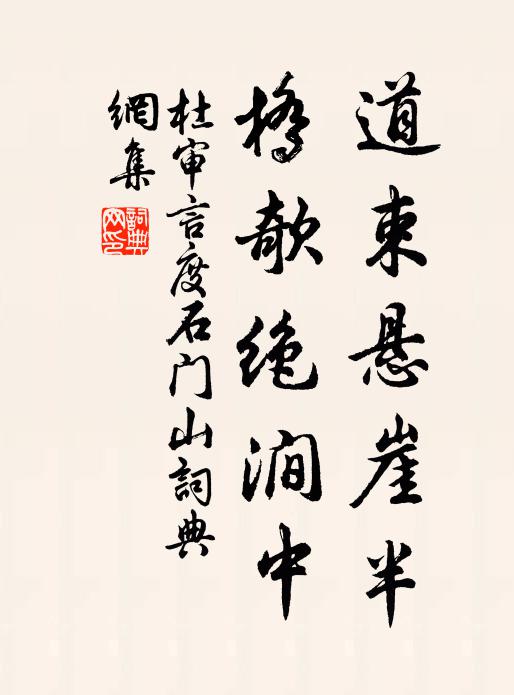 道束悬崖半
橋欹绝澗中
杜审言度石门山詞典
網集
詞典
网印